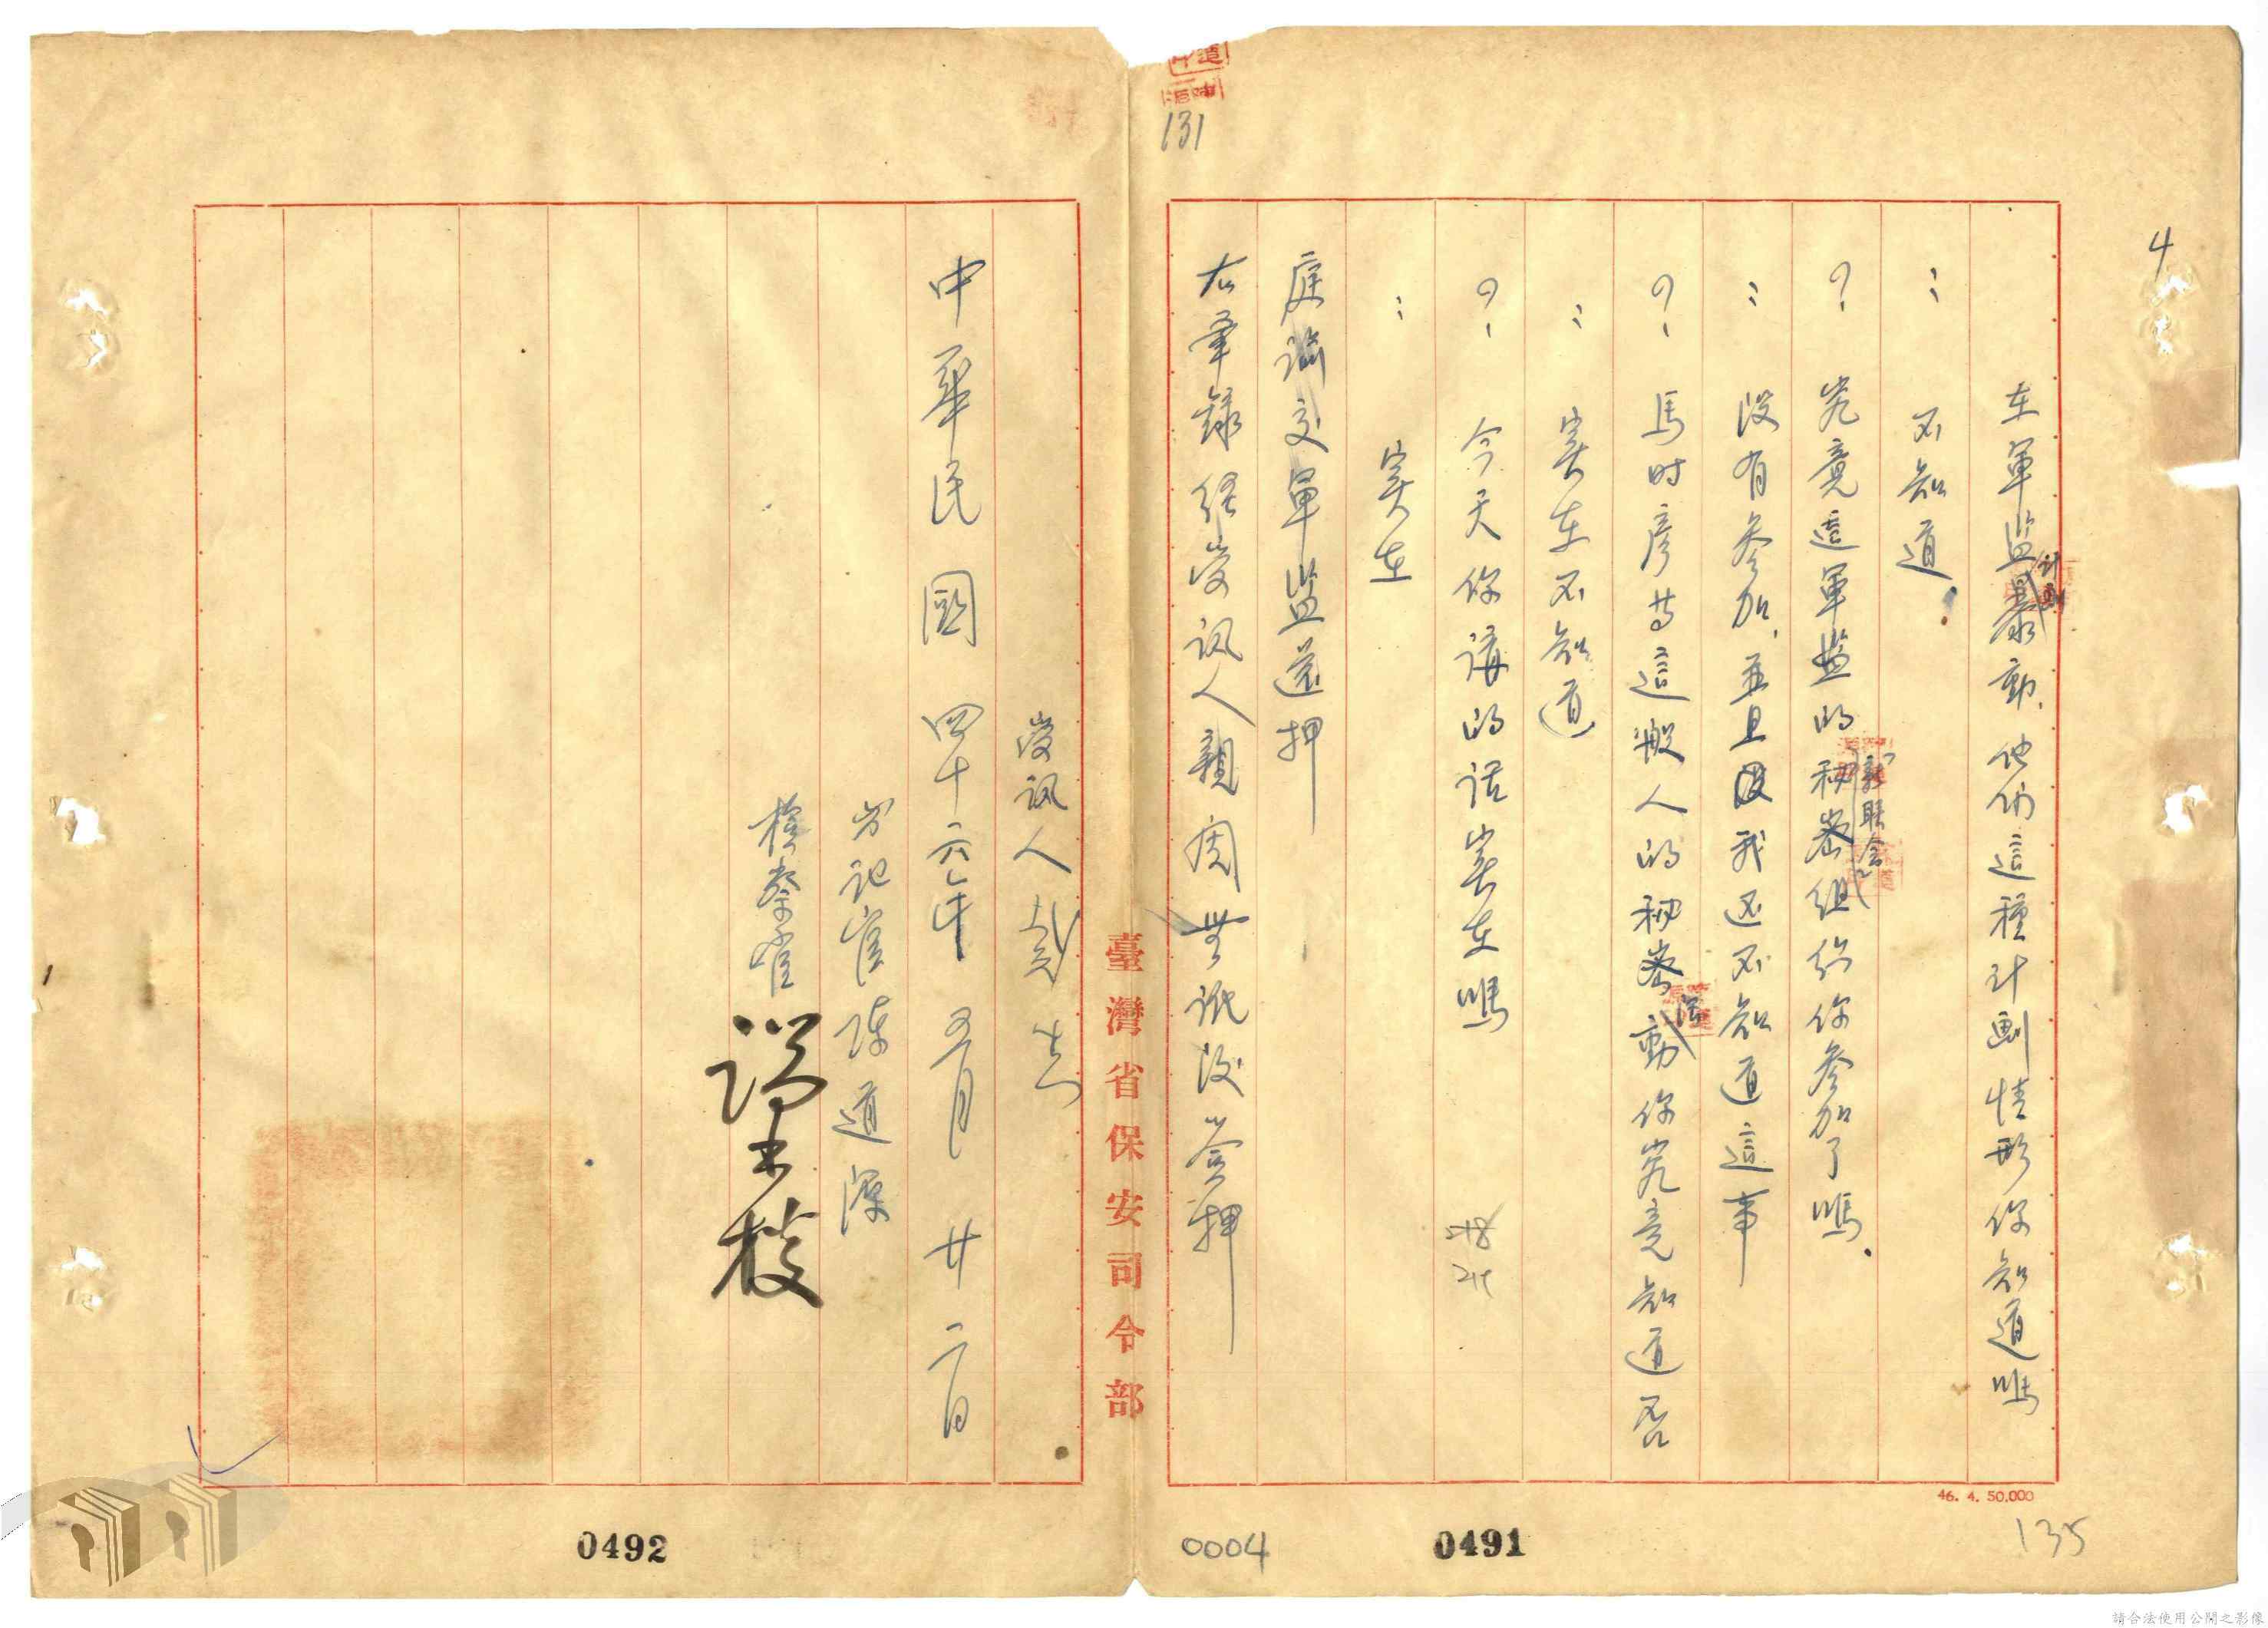 4
在軍監計劃暴動、他們這種計劃情形你知道嗎
：不知道。
？究竟這軍監的秘密組織「新聯會」你參加了嗎
：沒有參加、並且我還不知道這事
？馬时彥等這般人的秘密活動你究竟知道否
：實在不知道
？今天你講的话實在嗎
：實在
庭諭交軍監還押
右筆錄經受訊人親閱無訛後簽押
131
46. 4. 50,000
135
0491
0004
臺灣省保安司令部
受訊人
中華民國四十六年五月廿二日
书記官陳道深
檢察官
0492
請合法使用公開之影像